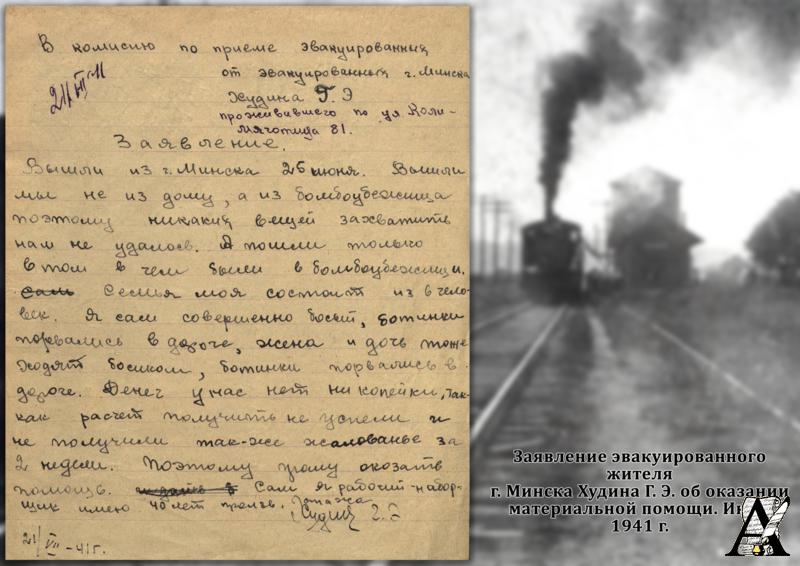 В комисию по приеме эвакуированных
от эвакуированных г. Минска
Худина Г. Э
проживавшего по ул. Коли-
Заявление.
Вышли из г. Минска 25 июня. Вышли
мы не из дому, а из бомбоубежища
поэтому никаких вещей захватить
нам не удалось. А пошли только
в том в чем были в бомбоубежищи.
Сам Семья моя состоит из 6 чело-
век. Я сам совершенно босый, ботинки
порвались в дороге, жена и дочь тоже
ходят босиком, ботинки порвались в
дороге. Денег у нас нет ни копейки, так-
как расчет получить не успели и
не получили так-же жалованье за
2 недели. Поэтому прошу оказать
помощь. Сам я рабочий-набор-
щик имею 40 лет произв. стажа
Худин Г. Э
21/VII-41 г.
Заявление эвакуированного
жителя
г. Минска Худина Г. Э. об оказании
материальной помощи.
1941 г.